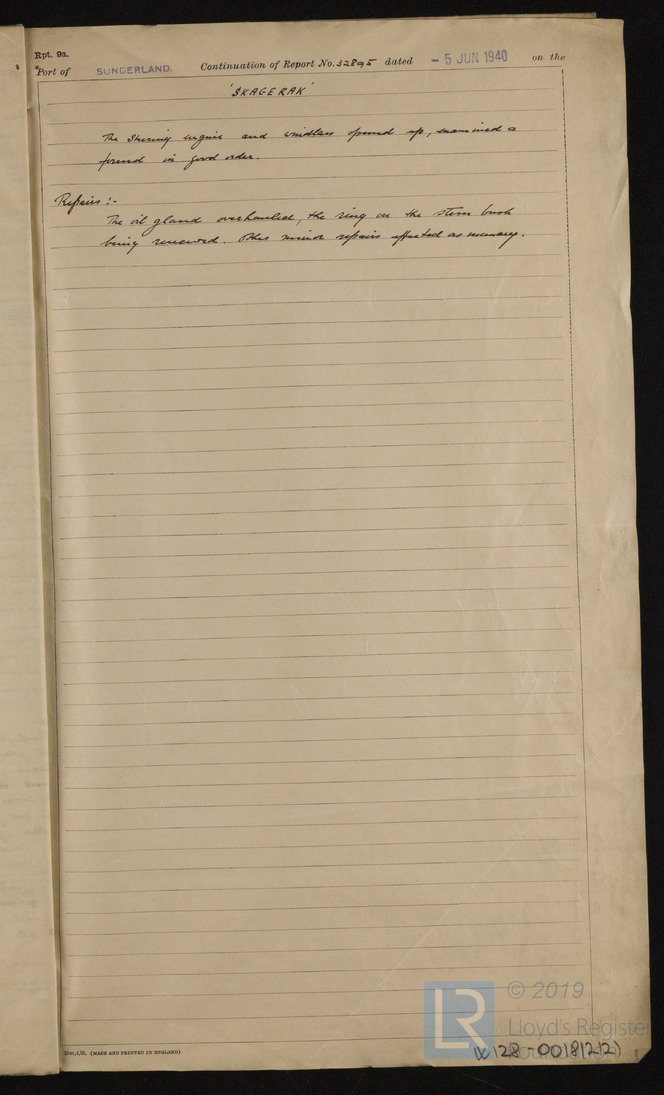 Rpt. 9a.
Port of SUNDERLAND. Continuation of Report No. 32895 dated - 5 JUN 1940 on the
'SKAGERAK'
The steering engine and windlass opened up, examined &
found in good order.
Repairs :-
The oil gland overhauled, the ring on the stern bush
being renewed. Other minor repairs effected as necessary.
(MADE AND PRINTED IN ENGLAND)
© 2019
Lloyd's Register
Foundation
W128-0018(2/2)